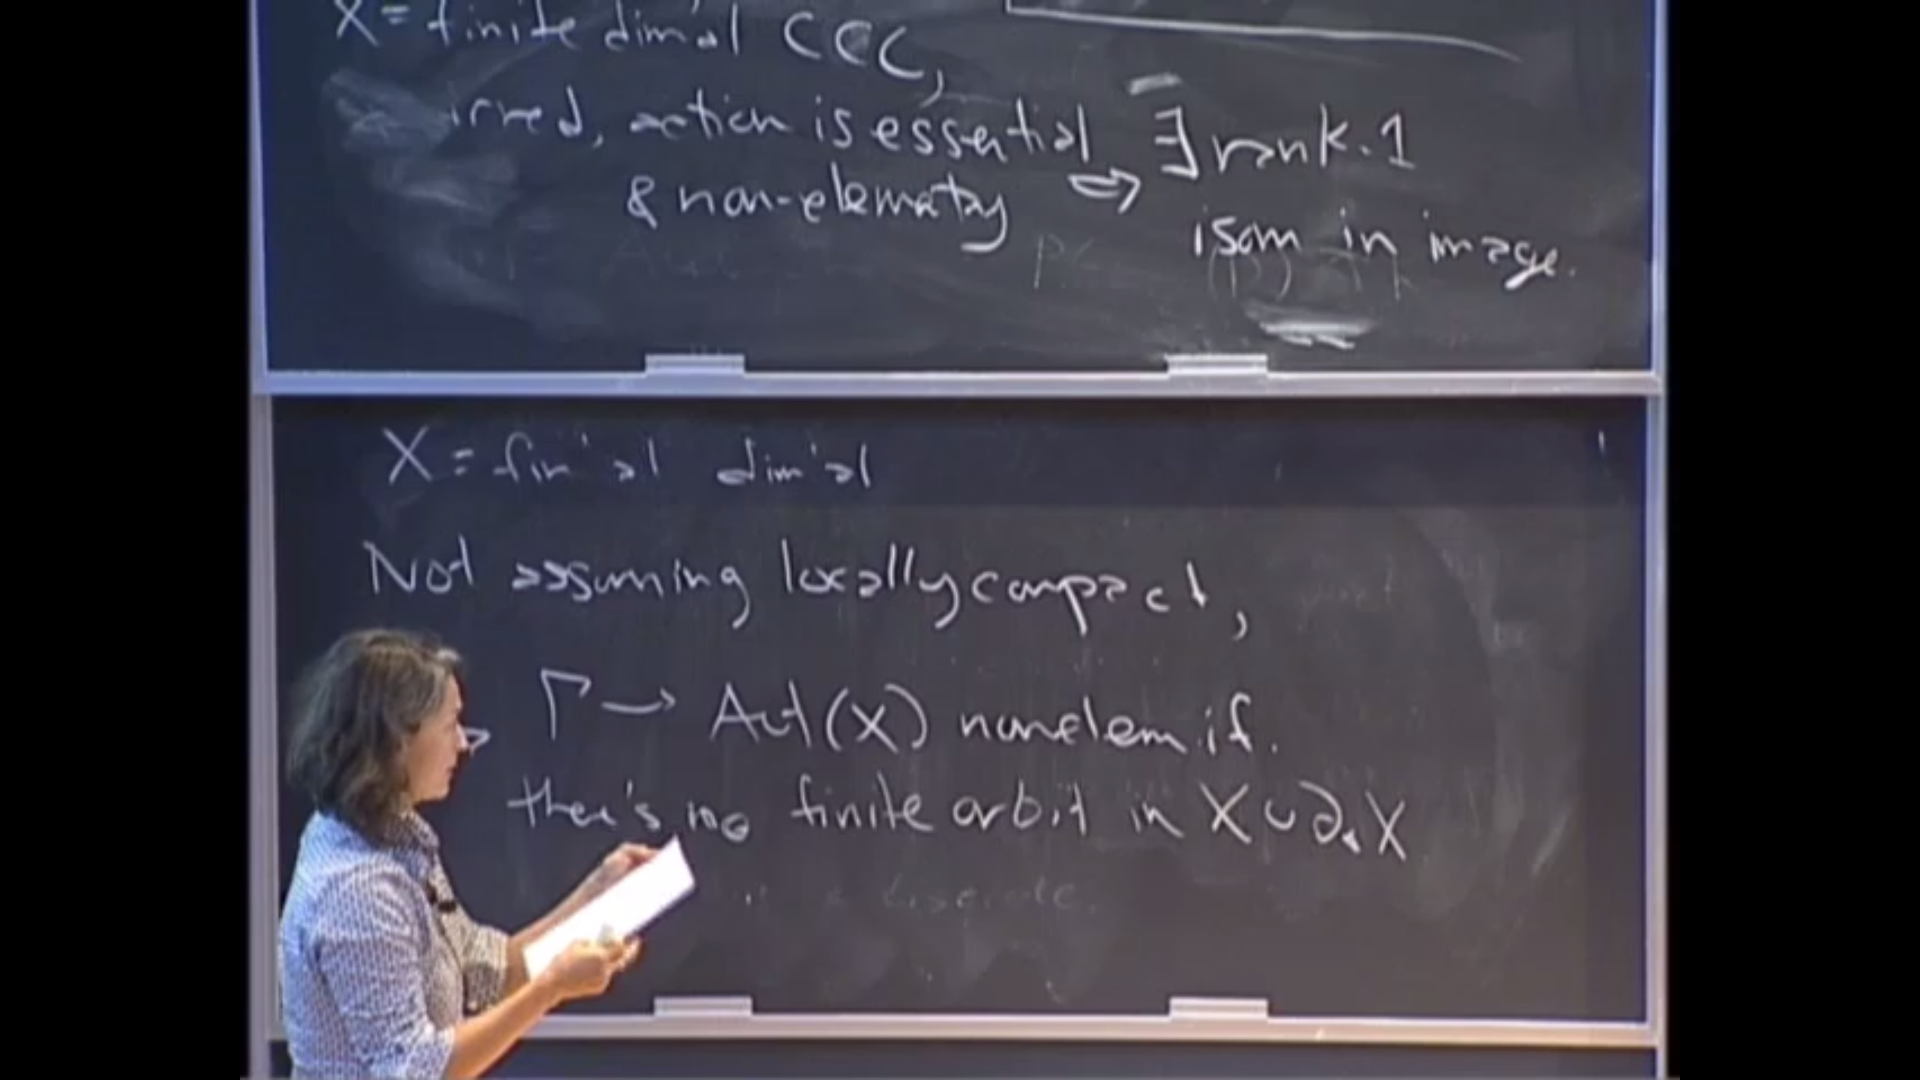 X = finite dim'al CCC,
irred, action is essential ∃ rank.1
& non-elematry ⇒ isom in image.
X = fin'al dim'al
Not assuming locally compact,
Γ → Aut(X) nonelem if.
there's no finite orbit in X ∪ ∂X